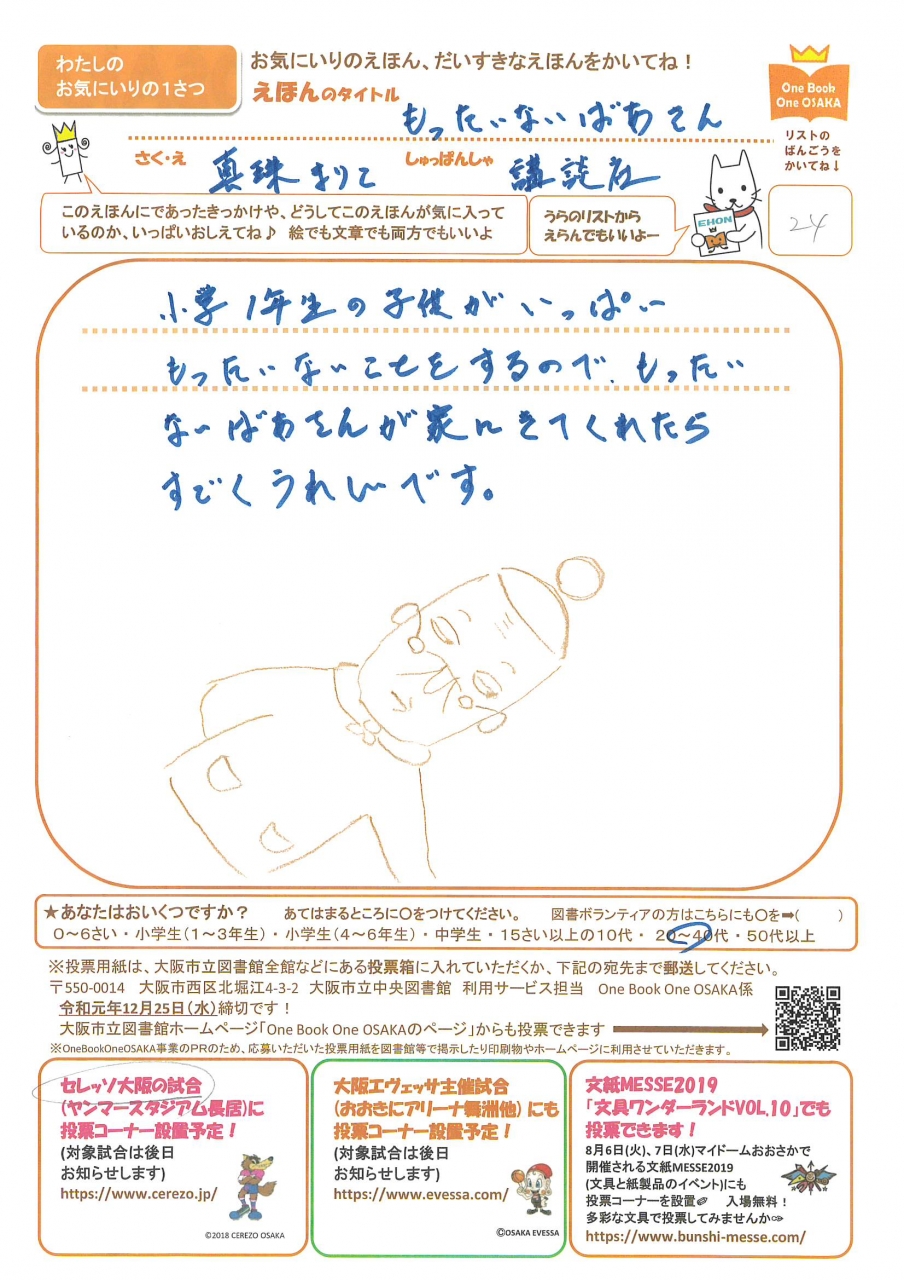 わたしの
お気にいりの1さつ
お気にいりのえほん、だいすきなえほんをかいてね！
えほんのタイトル
もったいないばあさん
One Book
One OSAKA
リストの
ばんごうを
かいてね↓
さく・え
真珠まりこ
しゅっぱんしゃ
講談社
このえほんにであったきっかけや、どうしてこのえほんが気に入って
いるのか、いっぱいおしえてね♪ 絵でも文章でも両方でもいいよ
うらのリストから
えらんでもいいよー
EHON
24
小学1年生の子供がいっぱい
もったいないことをするので、もったい
ないばあさんが家にきてくれたら
すごくうれしいです。
★あなたはおいくつですか？ あてはまるところに○をつけてください。 図書ボランティアの方はこちらにも○を➡( )
0～6さい・小学生(1～3年生)・小学生(4～6年生)・中学生・15さい以上の10代・ 20～40代・50代以上
※投票用紙は、大阪市立図書館全館などにある投票箱に入れていただくか、下記の宛先まで郵送してください。
〒550-0014 大阪市西区北堀江4-3-2 大阪市立中央図書館 利用サービス担当 One Book One OSAKA係
令和元年12月25日(水)締切です！
大阪市立図書館ホームページ「One Book One OSAKAのページ」からも投票できます
※OneBookOneOSAKA事業のPRのため、応募いただいた投票用紙を図書館等で掲示したり印刷物やホームページに利用させていただきます。
セレッソ大阪の試合
(ヤンマースタジアム長居)に
投票コーナー設置予定！
(対象試合は後日
お知らせします)
https://www.cerezo.jp/
©2018 CEREZO OSAKA
大阪エヴェッサ主催試合
(おおきにアリーナ舞洲他)にも
投票コーナー設置予定！
(対象試合は後日
お知らせします)
https://www.evessa.com/
©OSAKA EVESSA
文紙MESSE2019
「文具ワンダーランドVOL.10」でも
投票できます！
8月6日(火)、7日(水)マイドームおおさかで
開催される文紙MESSE2019
(文具と紙製品のイベント)にも
投票コーナーを設置 入場無料！
多彩な文具で投票してみませんか
https://www.bunshi-messe.com/